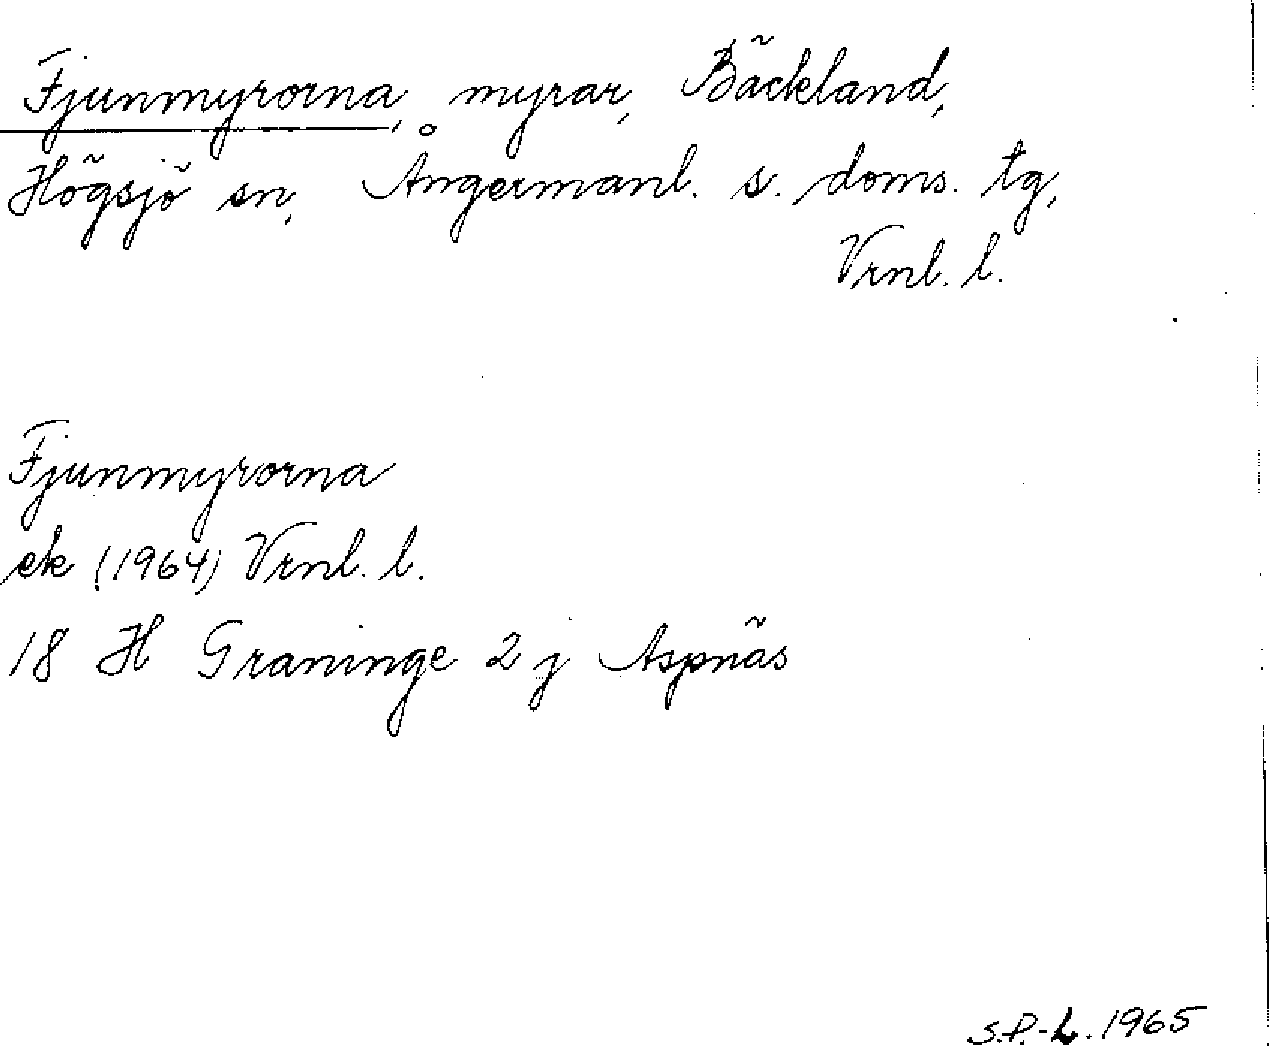 Fjunmyrorna, myrar, Bäckland,
Högsjö sn, Ångermanl. s. doms. tg,
Vrnl. l.
Fjunmyrorna
ek (1964) Vrnl. l.
18 H Graninge 2 j Aspnäs
S.P.-L. 1965